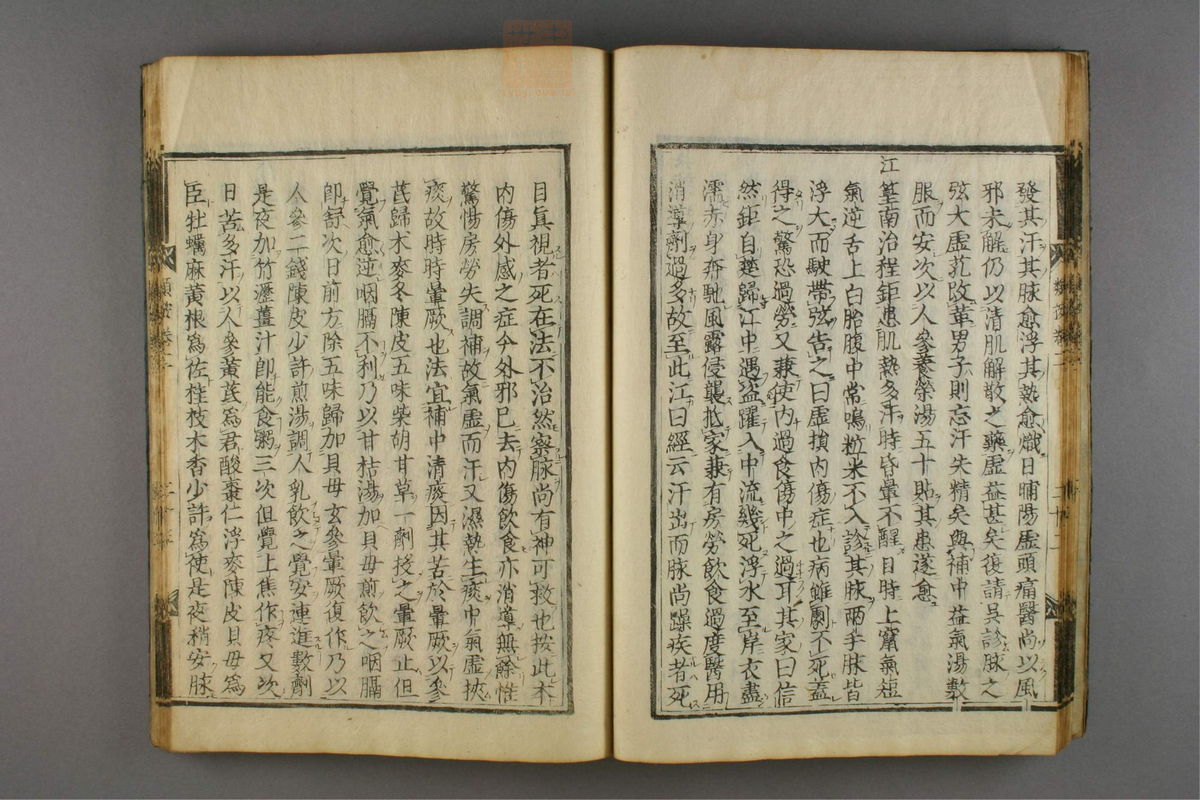 發其汗其脉愈浮其熱愈熾日晡陽虛頭痛醫尚以風
邪未解仍以清肌解散之藥虛益甚矣復請吳診脉之
弦大虛芤改革男子則忘汗失精矣與補中益氣湯數
服而安次以人參養榮湯五十貼其患遂愈
江篁南治程鉅患肌熱多汗時昏暈不醒目時上竄氣短
氣逆舌上白胎腹中常鳴粒米不入診其脉兩手脉皆
浮大而駛帶弦告之曰虛損內傷症也病雖劇不死蓋
得之驚恐過勞又兼使內過食傷中之過耳其家曰信
然鉅自楚歸江中遇盜躍入中流幾死浮水至岸衣盡
濡赤身奔馳風露侵襲抵家兼有房勞飲食過度醫用
消導劑過多故至此江曰經云汗出而脉尚躁疾者死
目直視者死在法不治然察脉尚有神可救也按此本
內傷外感之症今外邪已去內傷飲食亦消導無餘惟
驚惕房勞失調補故氣虛而汗又濕熱生痰中氣虛挾
痰故時時暈厥也法宜補中清痰因其苦於暈厥以參
芪歸术麥冬陳皮五味柴胡甘草一劑投之暈厥止但
覺氣愈逆咽膈不利乃以甘枯湯加貝母煎飲之咽膈
卽舒次日前方除五味歸加貝母玄參暈厥復作乃以
人參二錢陳皮少許煎湯調人乳飲之覺安連進數劑
是夜加竹瀝薑汁卽能食粥三次但覺上焦作疼又次
日苦多汗以人參黃芪爲君酸棗仁浮麥陳皮貝母爲
臣牡蠣麻黃根爲佐桂枝木香少許爲使是夜稍安脉